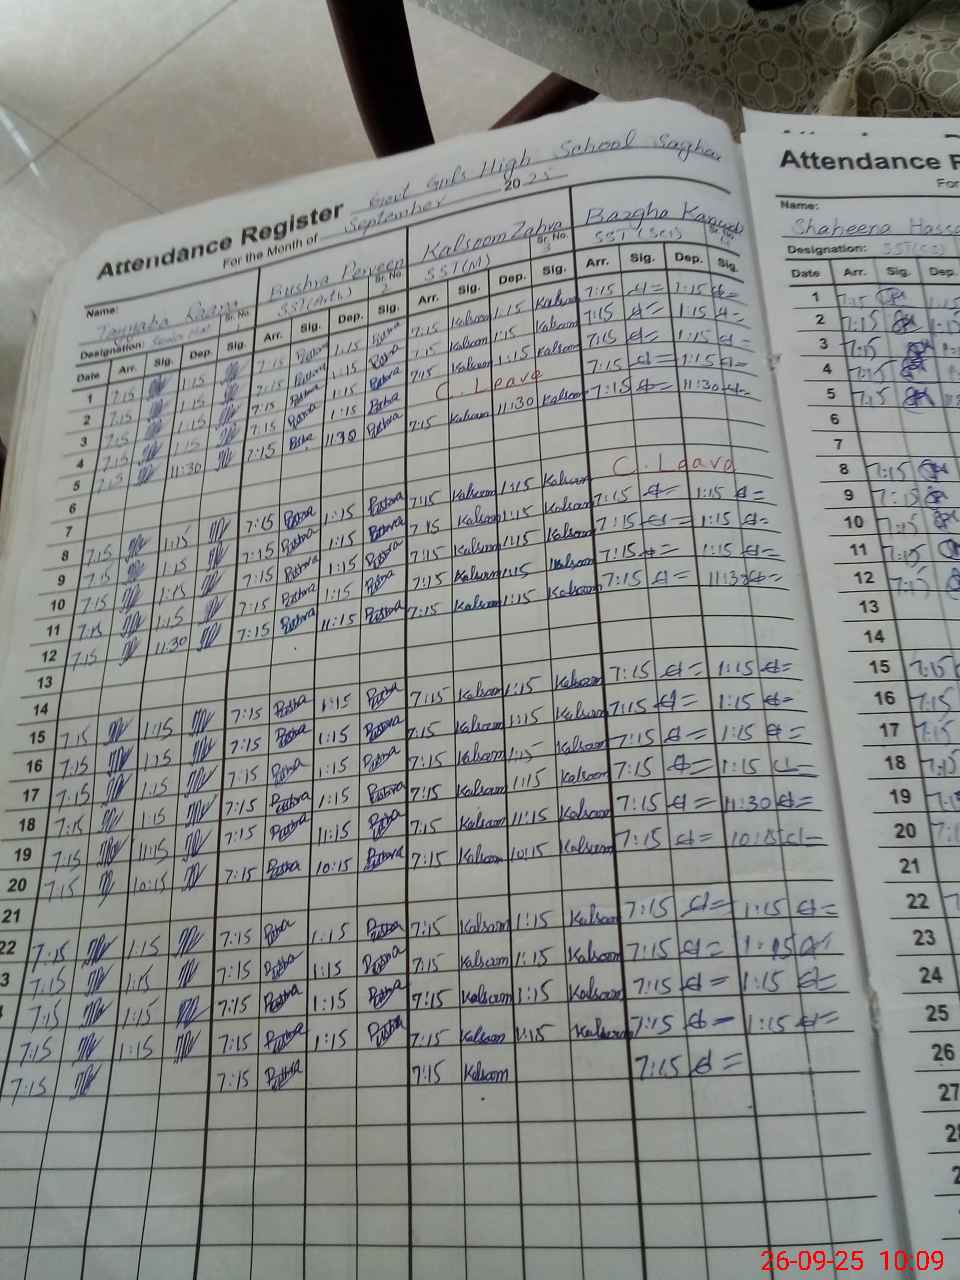 Attendance Register Govt Girls High School Saghar
For the Month of September 2025
Name: Bushra Perveen Kalsoom Zahra
Designation: Sr. No. SST(Arts) Sr. No. 2 SST(M) Sr. No. 3 SST(Sci) Sr. No.
Date Arr. Sig. Dep. Sig. Arr. Sig. Dep. Sig. Arr. Sig. Dep. Sig. Arr. Sig. Dep. Sig.
1 7:15 1:15 7:15 Bushra 1:15 Bushra 7:15 Kalsoom 1:15 Kalsoom 7:15 1:15
2 7:15 1:15 7:15 Bushra 1:15 Bushra 7:15 Kalsoom 1:15 Kalsoom 7:15 1:15
3 7:15 1:15 7:15 Bushra 1:15 Bushra 7:15 Kalsoom 1:15 Kalsoom 7:15 1:15
4 7:15 1:15 7:15 Bushra 1:15 Bushra C. Leave 7:15 1:15
5 7:15 11:30 7:15 Bushra 11:30 Bushra 7:15 Kalsoom 11:30 Kalsoom 7:15 11:30
6
7
8 7:15 1:15 7:15 Bushra 1:15 Bushra 7:15 Kalsoom 1:15 Kalsoom C. Leave
9 7:15 1:15 7:15 Bushra 1:15 Bushra 7:15 Kalsoom 1:15 Kalsoom 7:15 1:15
10 7:15 1:15 7:15 Bushra 1:15 Bushra 7:15 Kalsoom 1:15 Kalsoom 7:15 1:15
11 7:15 1:15 7:15 Bushra 1:15 Bushra 7:15 Kalsoom 1:15 Kalsoom 7:15 1:15
12 7:15 11:30 7:15 Bushra 11:15 Bushra 7:15 Kalsoom 1:15 Kalsoom 7:15 11:30
13
14
15 7:15 1:15 7:15 Bushra 1:15 Bushra 7:15 Kalsoom 1:15 Kalsoom 7:15 1:15
16 7:15 1:15 7:15 Bushra 1:15 Bushra 7:15 Kalsoom 1:15 Kalsoom 7:15 1:15
17 7:15 1:15 7:15 Bushra 1:15 Bushra 7:15 Kalsoom 1:15 Kalsoom 7:15 1:15
18 7:15 1:15 7:15 Bushra 1:15 Bushra 7:15 Kalsoom 1:15 Kalsoom 7:15 1:15
19 7:15 11:15 7:15 Bushra 11:15 Bushra 7:15 Kalsoom 11:15 Kalsoom 7:15 11:30
20 7:15 10:15 7:15 Bushra 10:15 Bushra 7:15 Kalsoom 10:15 Kalsoom 7:15 10:15
21
22 7:15 1:15 7:15 Bushra 1:15 Bushra 7:15 Kalsoom 1:15 Kalsoom 7:15 1:15
3 7:15 1:15 7:15 Bushra 1:15 Bushra 7:15 Kalsoom 1:15 Kalsoom 7:15 1:15
7:15 1:15 7:15 Bushra 1:15 Bushra 7:15 Kalsoom 1:15 Kalsoom 7:15 1:15
7:15 1:15 7:15 Bushra 1:15 Bushra 7:15 Kalsoom 1:15 Kalsoom 7:15 1:15
7:15 7:15 Bushra 7:15 Kalsoom 7:15
Attendance
For
Name:
Shaheena Hassa
Designation:
Date Arr. Sig. Dep.
1 7:15 1:15
2 7:15 1:15
3 7:15
4 7:15
5 7:15
6
7
8 7:15
9 7:15
10 7:15
11 7:15
12 7:15
13
14
15 7:15
16 7:15
17 7:15
18 7:15
19
20
21
22
23
24
25
26
27
26-09-25 10:09